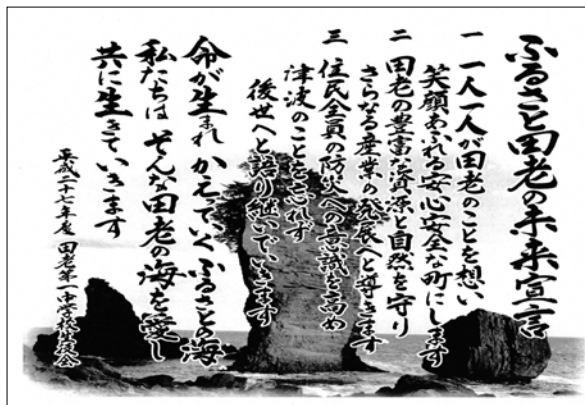 ふるさと田老の未来宣言
一 一人一人が田老のことを想い
笑顔あふれる安心安全な町にします
二 田老の豊富な資源と自然を守り
さらなる産業の発展へと導きます
三 住民全員の防災への意識を高め
津波のことを忘れず
後世へと語り継いでいきます
命が生まれ かえっていくふるさとの海
私たちは そんな田老の海を愛し
共に生きていきます
平成二十七年度 田老第一中学校生徒会